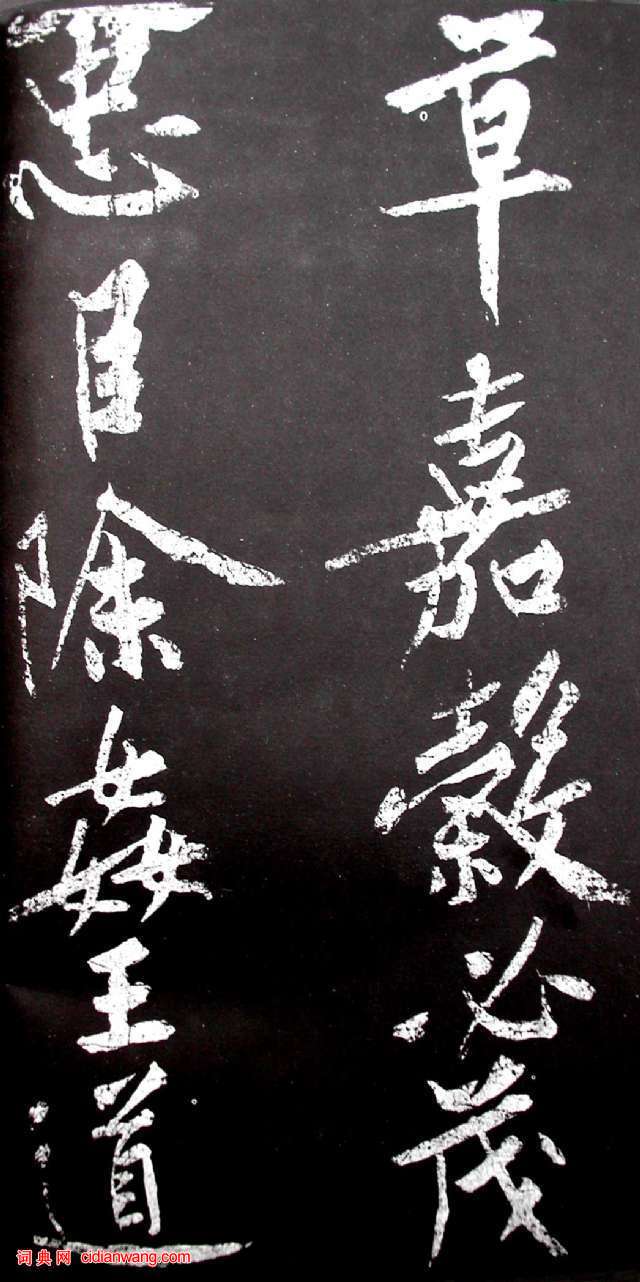 草嘉穀必茂
忠臣除姦王道
词典网 cidianwang.com